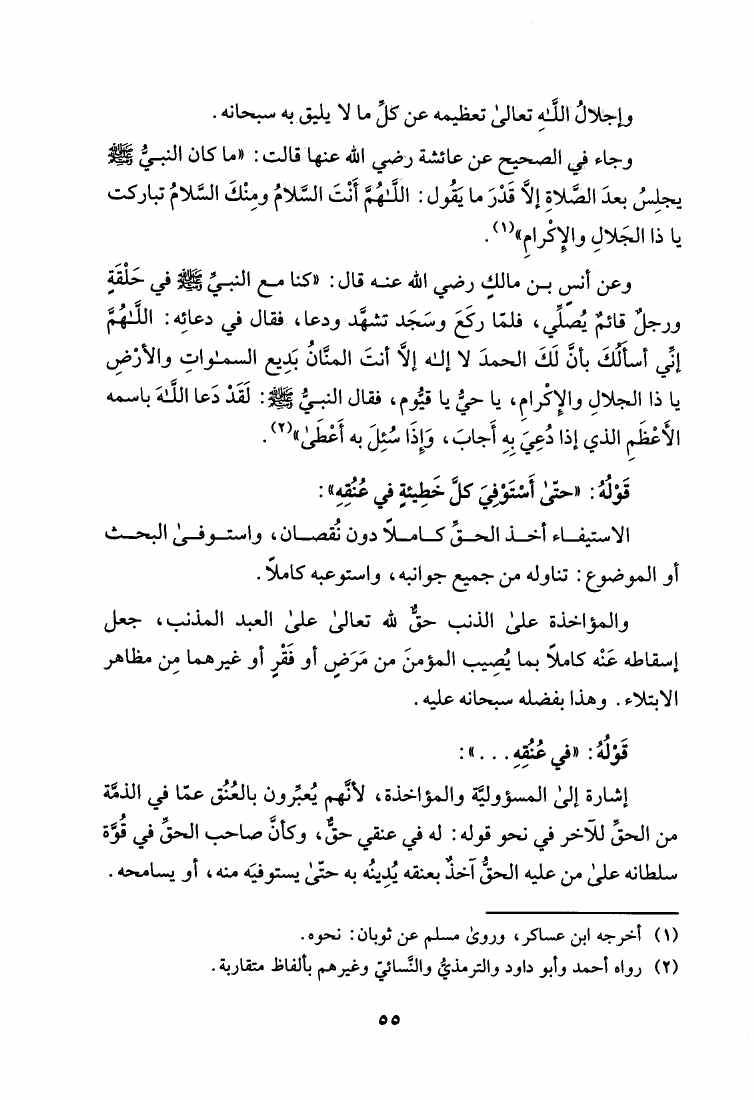 وإجلالُ اللَّـهِ تعالىٰ تعظيمه عن كلِّ ما لا يليق به سبحانه .
وجاء في الصحيح عن عائشة رضي الله عنها قالت : «ما كان النبيُّ ﷺ
يجلِسُ بعدَ الصَّلاةِ إلاَّ قَدْرَ ما يَقُول : اللَّـهُمَّ أَنْتَ السَّلامُ ومِنْكَ السَّلامُ تباركت
يا ذا الجَلالِ والإِكْرامِ»(١) .
وعن أنسِ بـن مالكٍ رضي الله عنـه قال : «كنا مـع النبـيِّ ﷺ في حَلْقَةٍ
ورجلٌ قائمٌ يُصلِّي ، فلمّا ركَعَ وسَجَد تشهَّد ودعا ، فقال في دعائِه : اللَّـهُمَّ
إنِّي أسألُكَ بأنَّ لَكَ الحمدَ لا إلـه إلاَّ أنتَ المنَّانُ بَدِيع السمـٰواتِ والأرْضِ
يا ذا الجلالِ والإِكْرامِ ، يا حيُّ يا قيُّوم ، فقال النبـيُّ ﷺ : لَقَدْ دَعا اللَّـهَ باسمه
الأَعْظَمِ الذي إذا دُعِيَ بِهِ أجابَ ، وَإِذَا سُئِلَ به أَعْطَىٰ»(٢) .
قَوْلُهُ : «حتىٰ أَسْتَوْفِيَ كلَّ خَطِيئةٍ في عُنُقِهِ» :
الاستيفـاء أخـذ الحـقِّ كـامـلاً دون نُقصـان ، واستـوفـىٰ البحـث
أو الموضوع : تناوله من جميع جوانبه ، واستوعبه كاملاً .
والمؤاخذة علىٰ الذنب حقٌّ لله تعالىٰ علىٰ العبد المذنب ، جعل
إسقاطه عَنْه كاملاً بما يُصِيب المؤمنَ من مَرَضٍ أو فَقْرٍ أو غيرهما مِن مظاهر
الابتلاء . وهذا بفضله سبحانه عليه .
قَوْلُهُ : «في عُنُقِهِ . . .» :
إشارة إلىٰ المسؤوليَّة والمؤاخذة ، لأنَّهم يُعبِّرون بالعُنُق عمّا في الذمَّة
من الحقِّ للآخر في نحو قوله : له في عنقي حقٌّ ، وكأنَّ صاحب الحقِّ في قُوَّة
سلطانه علىٰ من عليه الحقُّ آخذٌ بعنقه يُدِينُه به حتّىٰ يستوفيَه منه ، أو يسامحه .
(١) أخرجه ابن عساكر ، وروىٰ مسلم عن ثوبان : نحوه .
(٢) رواه أحمد وأبو داود والترمذيُّ والنَّسائيّ وغيرهم بألفاظ متقاربة .
٥٥